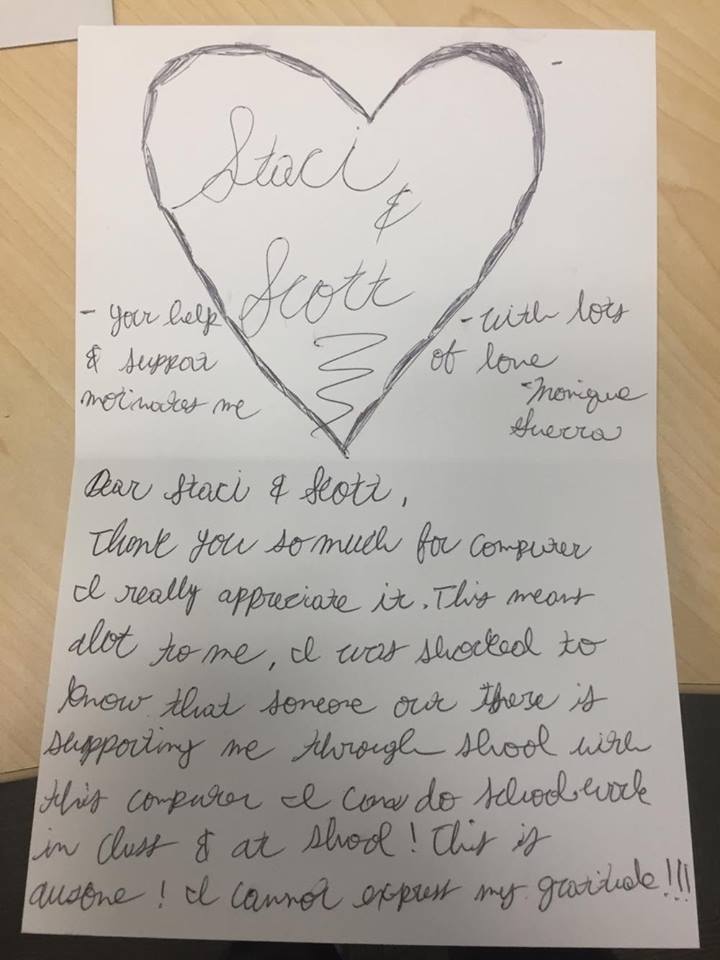 Staci
&
Scott
- Your help
& support
motivates me
- With lots
of love
- Monique
Guerra
Dear Staci & Scott,
Thank you so much for computer
I really appreciate it. This means
alot to me, I was shocked to
know that someone out there is
supporting me through shool with
this computer I can do schoolwork
in class & at shool! This is
awsome! I cannot express my gratitude!!!